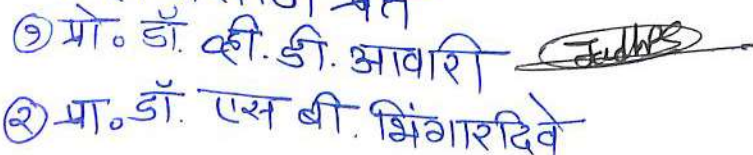 ① प्रो. डॉ. व्ही. डी. आवारी
② प्रा. डॉ. एस बी. भिंगारदिवे